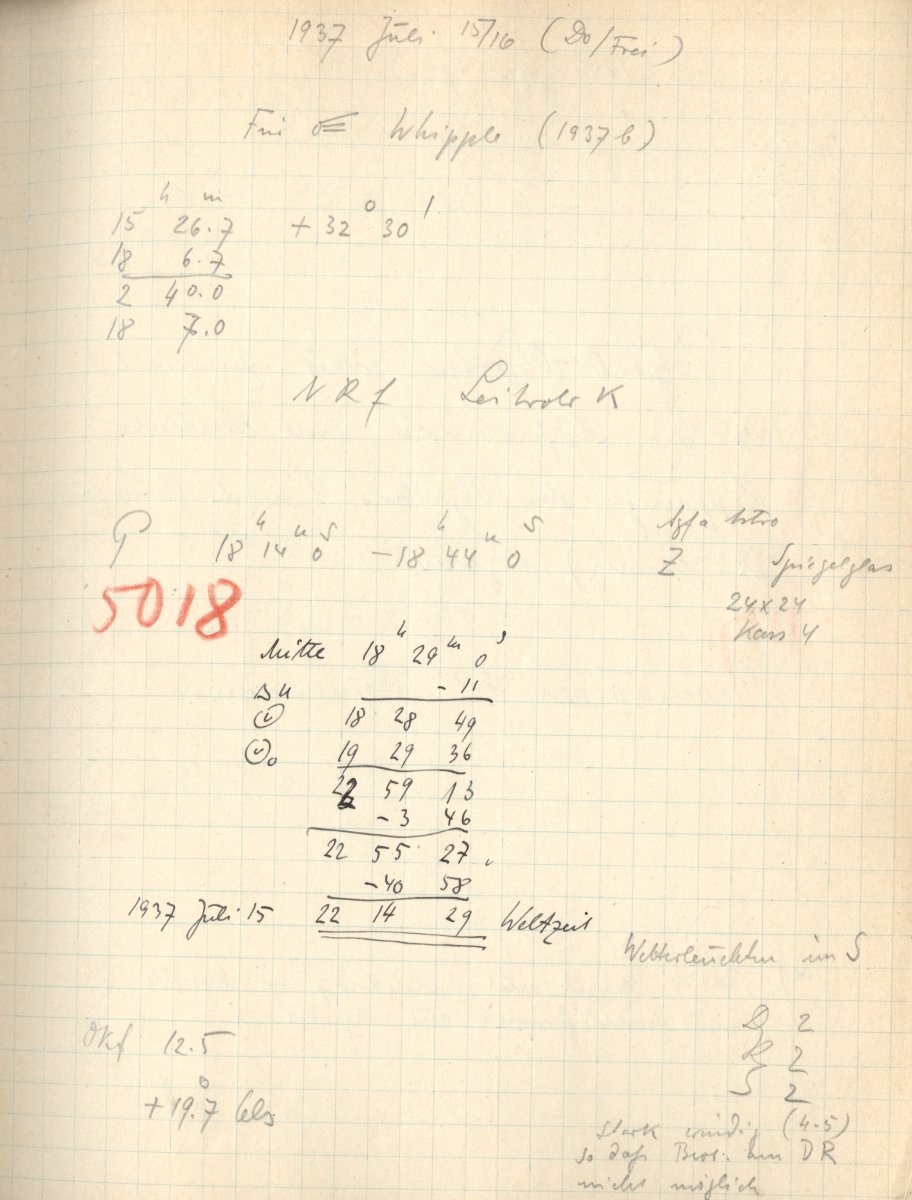 1937 Juli 15/16 (Do/Frei)
Whipple (1937 b)
15 h 26.7 m + 32° 30'
18 6.7
2 40.0
18 7.0
N R f Leitrohr K
18h 14m 0s – 18h 44m 0s
5018
Agfa Astro
Z Spiegelglas
24x24
Kass 4
Mitte 18h 29m 0s
Δu - 11
18 28 49
19 29 36
22 59 13
- 3 46
22 55 27
- 40 58
1937 Juli 15 22 14 29 Weltzeit
Wetterleuchten im S
Okf 12.5
+19.°7 Cels
D 2
R 2
S 2
stark windig (4-5)
so daß Beob. am DR
nicht möglich